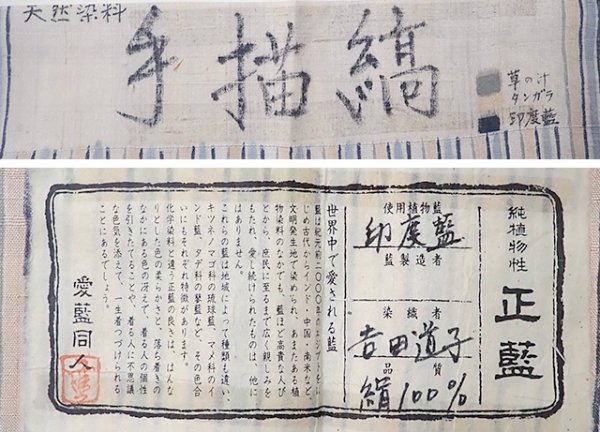 天然染料
手描縞
草の汁
タンガラ
印度藍
純植物性
正藍
使用植物藍
印度藍
藍製造者
染織者
吉田道子
品質
絹100%
世界中で愛される藍
藍は紀元前二〇〇〇年のエジプトをは
じめ古代からインド・中国・南米など、
文明発生地で染められ、あまたある植
物染料のなかでも、藍ほど高貴な人び
とから、庶民に至るまで広く親しみを
もたれ、愛し続けられたものは、他に
はありません。
これらの藍は地域によって種類も違い、
キツネノマゴ科の琉球藍、マメ科のイ
ンド藍、タデ科の蓼藍など、その色合
いにもそれぞれ特徴があります。
化学染料と違う正藍の良さは、はんな
りとした色の柔らかさと、落ち着きの
なかにある色の冴えで、着る人の個性
を引きたてることや、着る人に不思議
な色気を添えて、一生着つづけられる
ことにあるでしょう。
愛藍同人